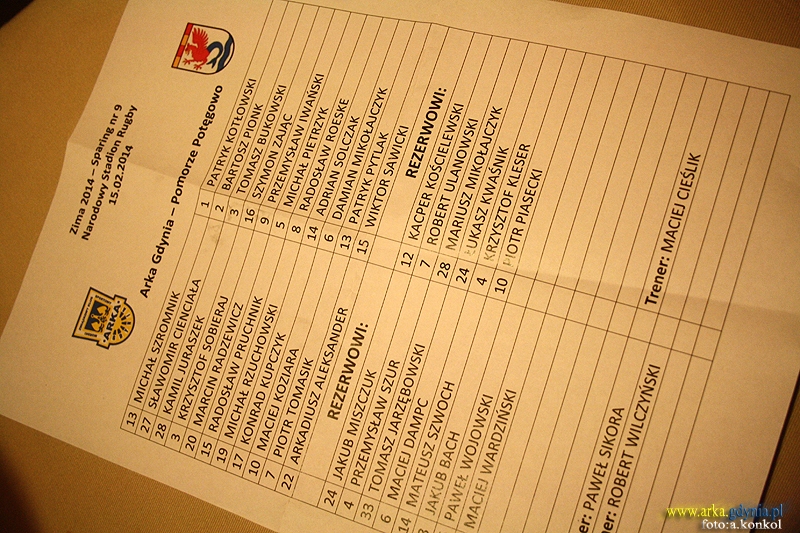 Zima 2014 – Sparing nr 9
Narodowy Stadion Rugby
15.02.2014
Arka Gdynia – Pomorze Potęgowo
ARKA
13 MICHAŁ SZROMNIK
27 SŁAWOMIR CIENCIAŁA
28 KAMIL JURASZEK
3 KRZYSZTOF SOBIERAJ
20 MARCIN RADZEWICZ
15 RADOSŁAW PRUCHNIK
19 MICHAŁ RZUCHOWSKI
17 KONRAD KUPCZYK
10 MACIEJ KOZIARA
7 PIOTR TOMASIK
22 ARKADIUSZ ALEKSANDER
REZERWOWI:
24 JAKUB MISZCZUK
4 PRZEMYSŁAW SZUR
33 TOMASZ JARZĘBOWSKI
6 MACIEJ DAMPC
14 MATEUSZ SZWOCH
JAKUB BACH
PAWEŁ WOJOWSKI
MACIEJ WARDZIŃSKI
PAWEŁ SIKORA
ROBERT WILCZYŃSKI
1 PATRYK KOTŁOWSKI
2 BARTOSZ PIONK
3 TOMASZ BUKOWSKI
16 SZYMON ZAJĄC
9 PRZEMYSŁAW IWAŃSKI
5 MICHAŁ PIETRZYK
8 RADOSŁAW ROESKE
14 ADRIAN SOLCZAK
6 DAMIAN MIKOŁAJCZYK
13 PATRYK PYTLAK
15 WIKTOR SAWICKI
REZERWOWI:
12 KACPER KOŚCIELEWSKI
7 ROBERT ULANOWSKI
28 MARIUSZ MIKOŁAJCZYK
24 ŁUKASZ KWAŚNIK
4 KRZYSZTOF KLESER
10 PIOTR PIASECKI
Trener: MACIEJ CIEŚLIK
www.arka.gdynia.pl
foto:a.konkol